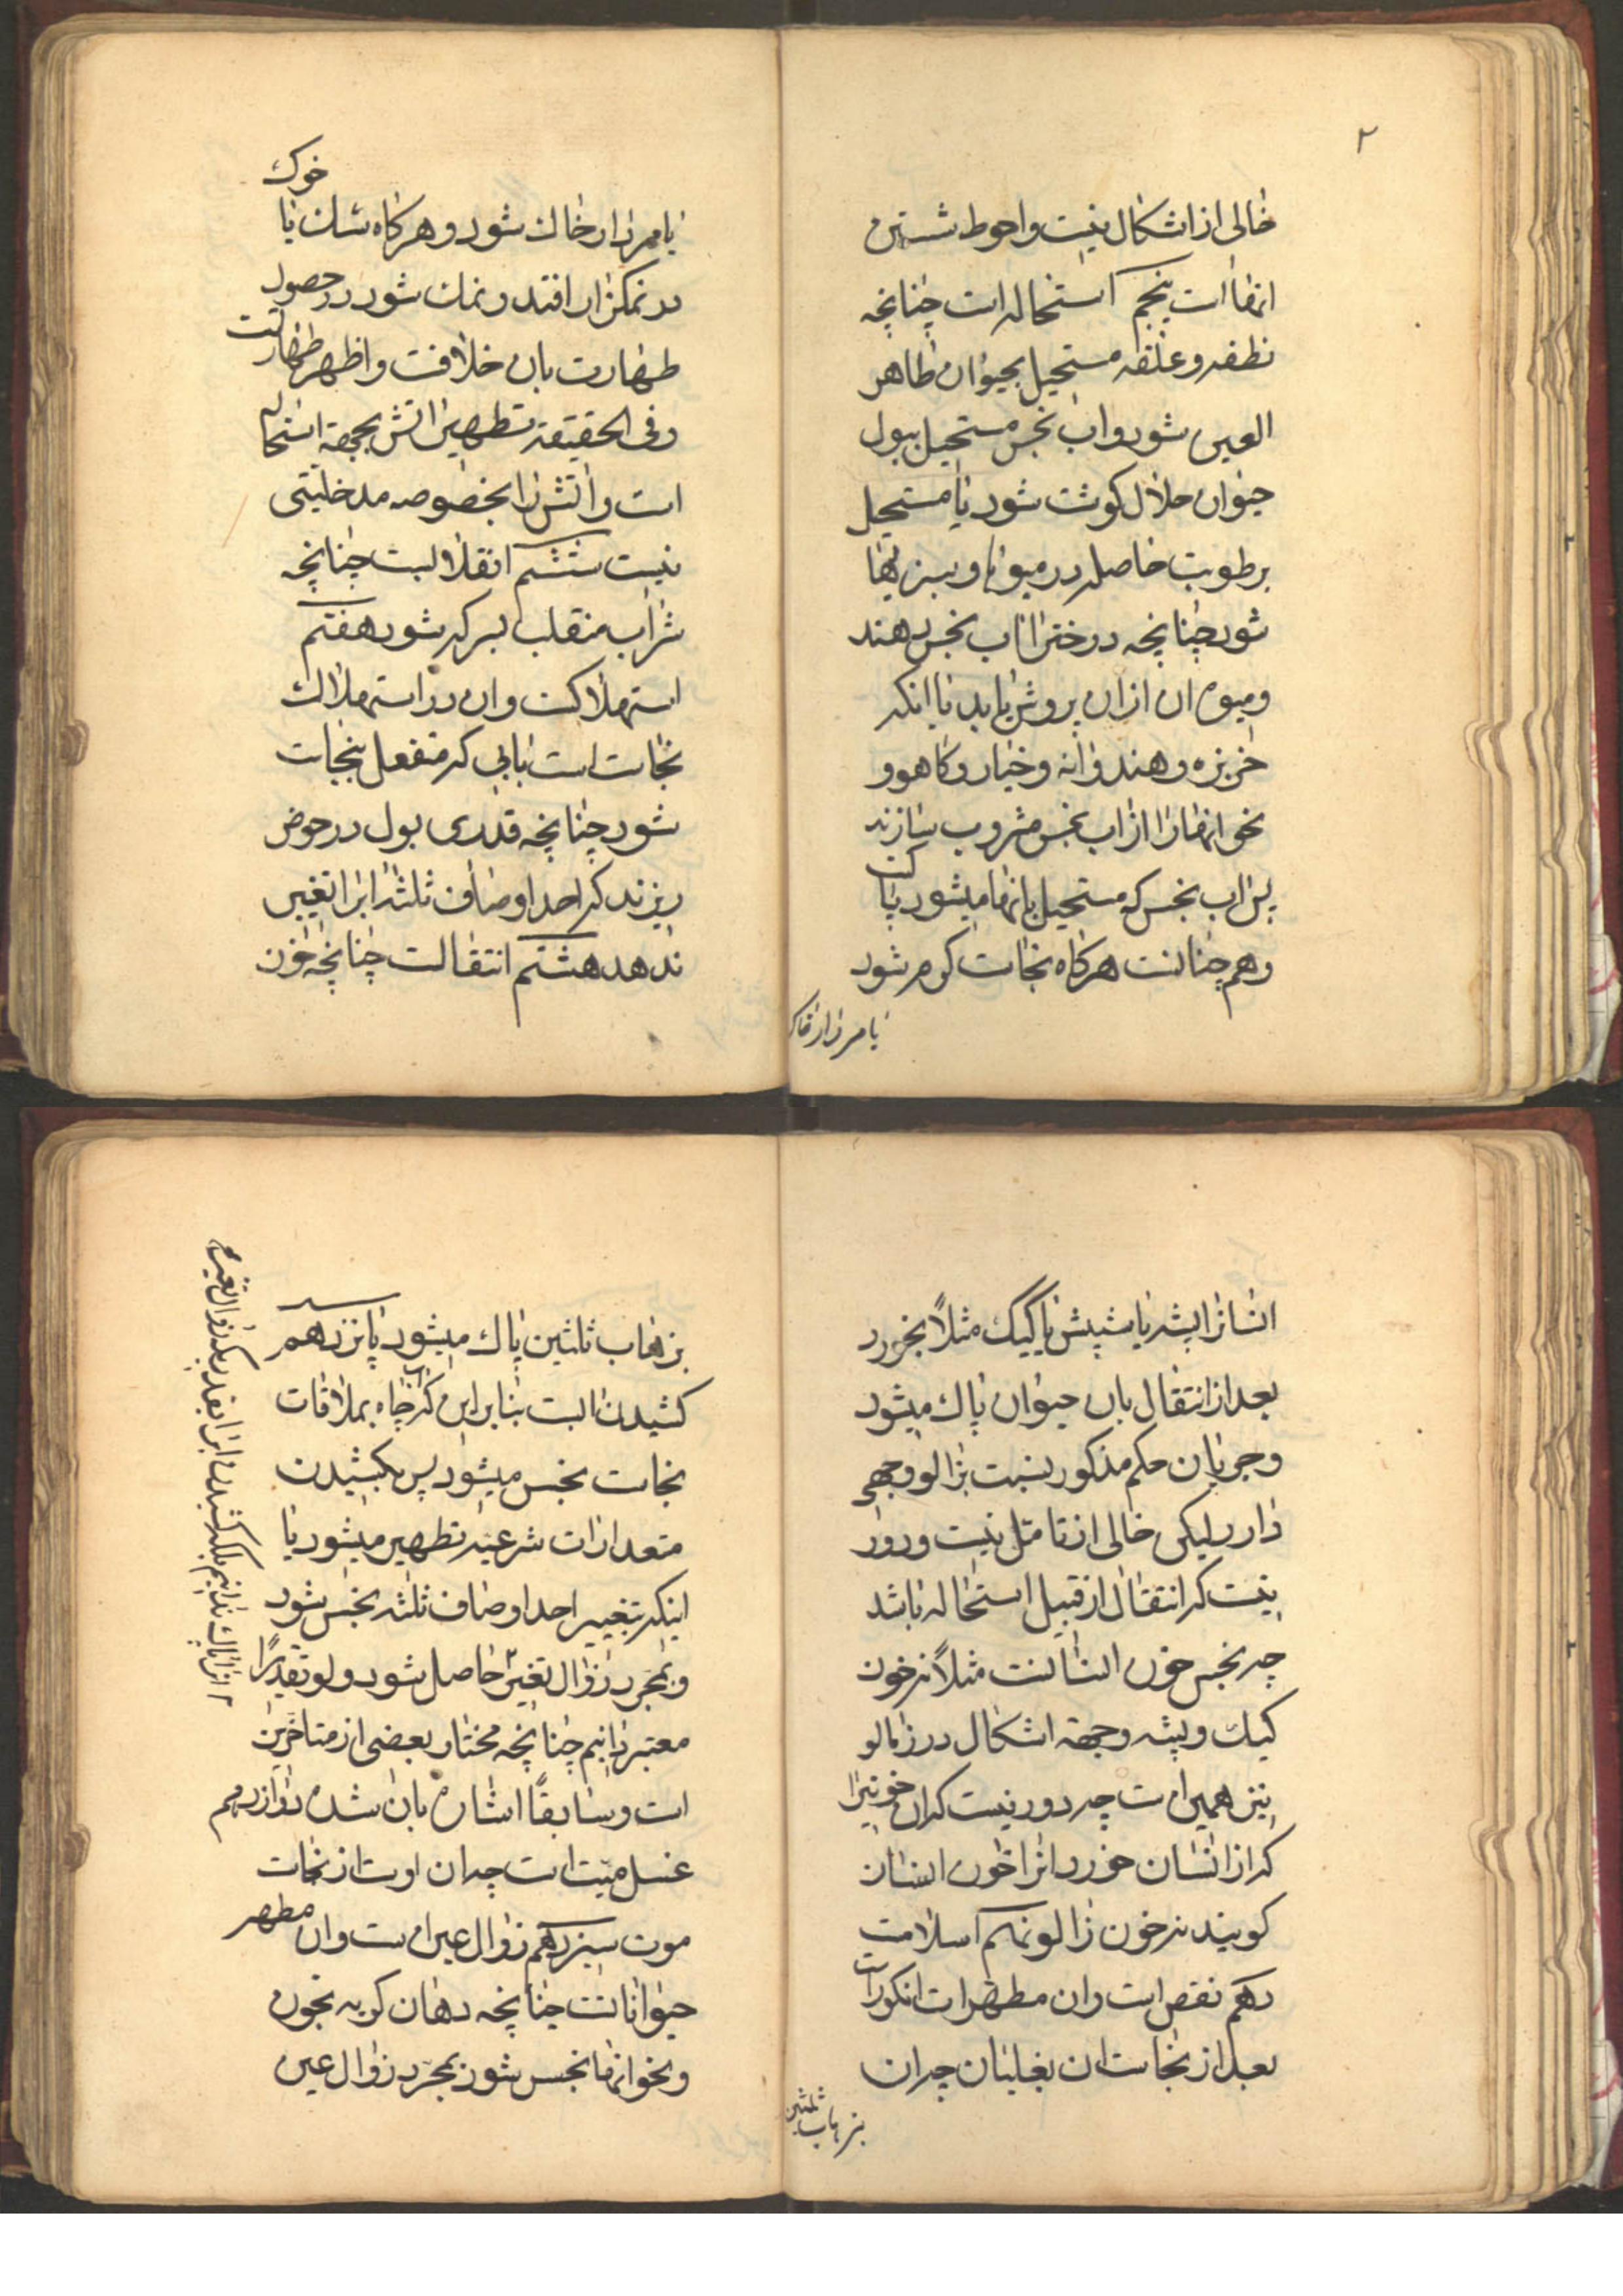 ۲
خالی از اشکال نیست و احوط شستن
انهااست پنجم استحاله است چنانچه
نطفه و علقه مستحیل بحیوان طاهر
العین شود و اب نجس مستحیل ببول
حیوان حلال کوشت شود یا مستحیل
برطوبت حاصله در میوها و سبزیها
شود چنانچه درخترا اب نجس دهند
و میوه ان از ان پروش یابد یا انکه
خربزه و هندوانه و خیار و کاهو و
نحو انها را از اب نجس مشروب سازند
پس اب نجس که مستحیل بانها میشود پاکست
و هم چنانست هرکاه نجاست کرم شود
یا مردار خاک
یا مردار خاک شود و هرکاه سک یا خوک
در نمکزار افتد و نمک شود در حصول
طهارت بان خلافست و اظهر طهارتست
و فی الحقیقة تطهیر اتش بجهة استحاله
است و اتش را بخصوصه مدخلیتی
نیست ششم انقلابست چنانچه
شراب منقلب بسرکه شود هفتم
استهلاکست و ان در استهلاک
نجاست است بابی که منفعل بنجاست
شود چنانچه قدری بول در حوض
ریزند که احد اوصاف ثلثه ابرا تغییر
ندهد هشتم انتقالست چنانچه خون
انسانرا پشه یا شپش یا کیک مثلاً بخورد
بعد از انتقال بان حیوان پاک میشود
و جریان حکم مذکور نسبت بزالو وجهی
دارد لیکن خالی از تامل نیست و دور
نیست که انتقال از قبیل استحاله باشد
چه نجس خون انسانست مثلاً نه خون
کیک و پشه و جهة اشکال در زالو
نیز همین است چه دور نیست که ان خونیرا
که از انسان خورد انرا خون انسان
کویند نه خون زالو نهم اسلامست
دهم نقص است و ان مطهر اب انکور است
بعد از نجاست ان بغلیان چه ان
بذهاب ثلثین
بذهاب ثلثین پاک میشود یانزدهم
کشیدن ابست بنابراین که اب چاه بملاقات
نجاست نجس میشود پس بکشیدن
مقدرات شرعیه تطهیر میشود یا
اینکه بتغییر احد اوصاف ثلثه نجس شود
و بمجرد زوال تغیر حاصل شود ولو تقدیرًا
معتبر دانیم چنانچه مختار بعضی از متاخرین
است و سابقًا اشاره بان شده دوازدهم
غسل میت است چه ان اوست از نجاست
موت سیزدهم زوال عین است و ان مطهر
حیوانانست چنانچه دهان کربه بخون
و نحو انها نجس شود بمجرد زوال عین